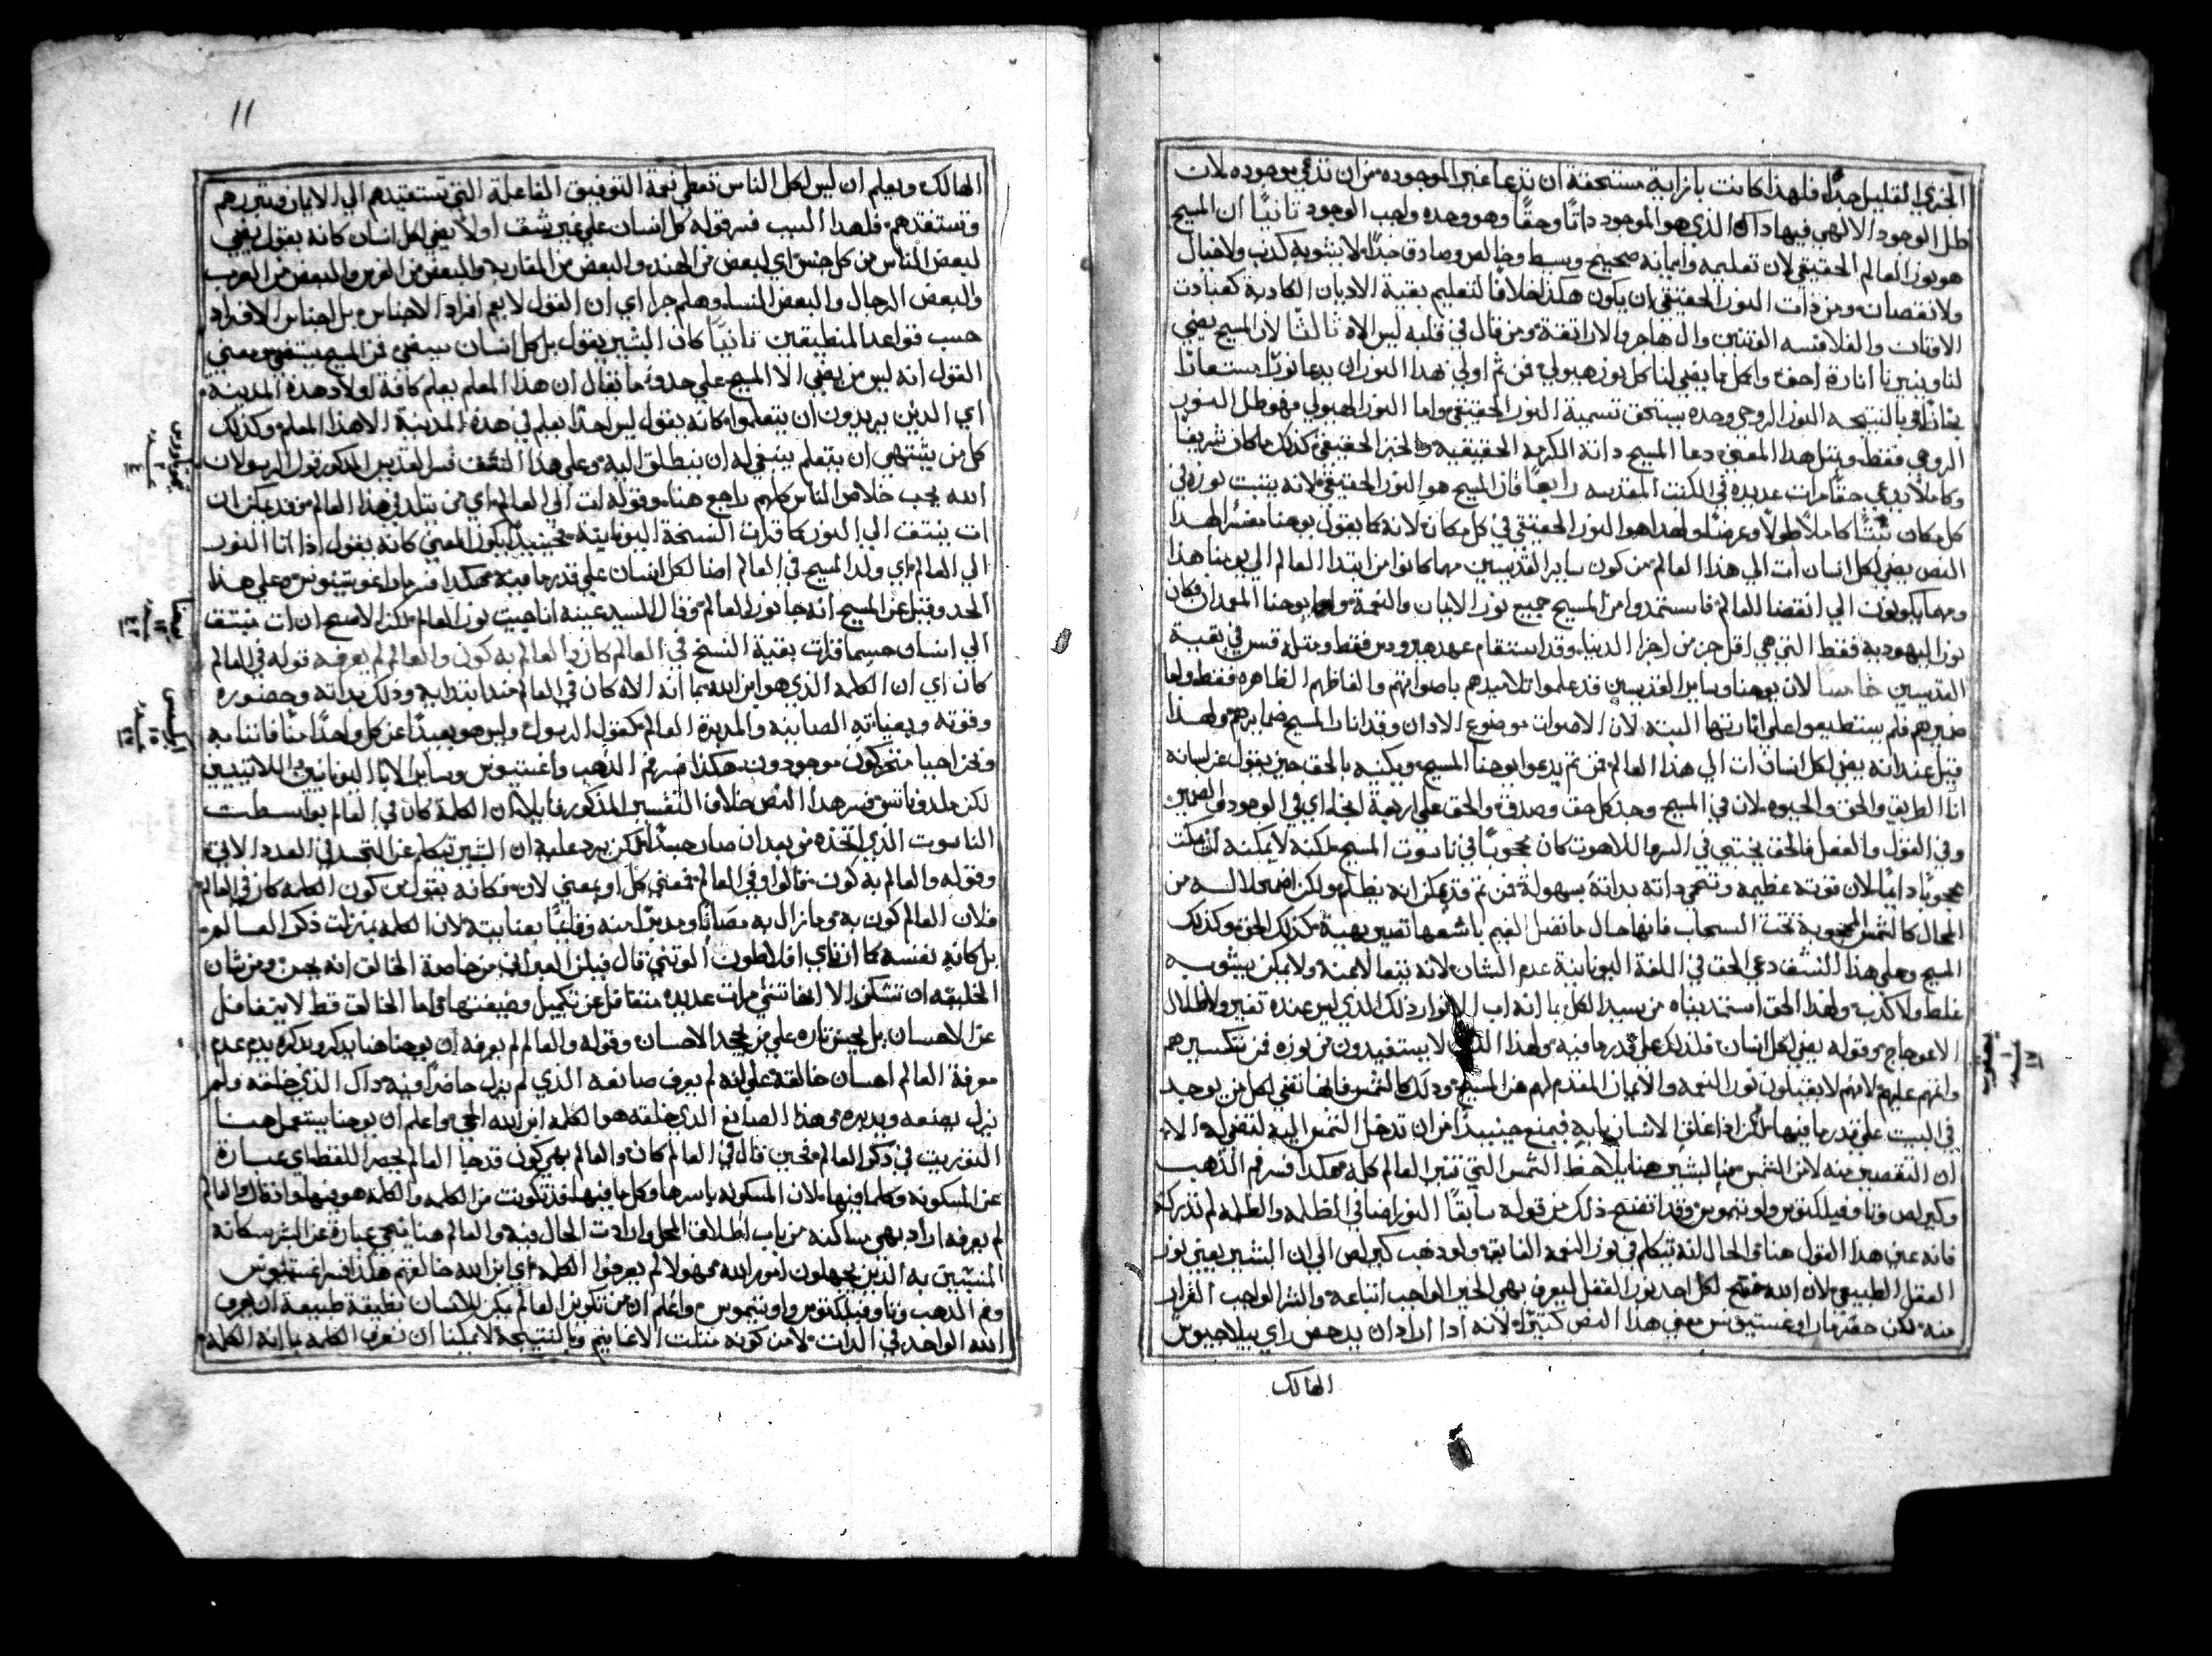 الجزي القليل جدًا فلهذا كانت بازايه مستحقة ان تدعا غير الموجوده من ان تدعي موجوده لان
ظل الوجود الالهي فيها داك الذي هو الموجود داتًا وحقًا وهو وحده واجب الوجود تانيًا ان المسيح
هو نور العالم الحقيقي لان تعليمه وايمانه صحيح وبسيط وخالص وصادق جدًا ولا يشوبه كدب ولا ضلال
ولا نقصان ومن دات النور الحقيقي ان يكون هكذا خلافًا لتعليم بقية الاديان الكادبة كعبادة
الاوتان والفلاسفه والهاجريه والاراتقة ومن قال في قلبه ليس الاه ثالثًا لان المسيح يضي
لنا وينيرنا انارة احق واكمل مما يضي لنا كل نور هيولي فمن تم اولي هدا النور ان يدعا نورًا مستعارًا
مجازًا وبالنتيجه النور الروحي وحده يستحق تسمية النور الحقيقي واما النور الهيولي فهو ظل النور
الروحي فقط وبمتل هدا المعني دعا المسيح داته الكرمة الحقيقيه والخبز الحقيقي كدلك ما كان شريفًا
وكاملًا يدعي حقًا مرات عديده في الكتب المقدسه رابعًا فان المسيح هو النور الحقيقي لانه يتبت نوره في
كل مكان تبتًا كاملًا طولًا وعرضًا ولهدا هو النور الحقيقي في كل مكان لانه كما يقول يوحنا مفسرًا لهدا
النص يضي لكل انسان ات الي هدا العالم من كون ساير القديسين مهما كانوا من ابتدا العالم الي يومنا هدا
ومهما يكونون الي انقضا العالم فاستمدوا من المسيح جميع نور الايمان والنعمة واما يوحنا المعمدان فكان
نور اليهودية فقط التي هي اقل جز من اجزا الدنيا وقد استقام عهد هيرودس فقط ومتله قس في بقية
القديسين خامسًا لان يوحنا وساير القديسين قد علموا تلاميدهم باصواتهم والفاظهم الظاهره فقط واما
ضميرهم فلم يستطيعوا علي انارتها البته لان الاصوات موضوع الادان وقد انار المسيح ضمايرهم ولهدا
قيل عنه انه يضي لكل انسان ات الي هدا العالم فمن تم يدعوا يوحنا المسيح ويكنيه بالحق حين يقول عن لسانه
انا الطريق والحق والحيوه لان في المسيح وحده كل حق وصدق والحق علي اربعة انحا اي في الوجود والضمير
وفي القول والفعل فالحق يختبي في السر اللاهوت كان محجوبًا في ناسوت المسيح لكنه لا يمكنه ان يمكت
محجوبًا دايمًا لان قوته عظيمه وتحمي داته بداته بسهولة فمن تم قد يمكن انه يظلم ولكن اضمحلاله من
المحال كالشمس المحجوبة تحت السحاب فانها حال ما تفصل الغيم باشعتها تصير بهية فكذلك الحق وكذلك
المسيح وعلي هدا النسق دعي الحق في اللغة اليونانية عدم النسيان لانه يتعالا عنه ولا يمكن يشوبه
غلط ولا كدب ولهدا الحق استمديناه من سيد الكل بما انه اب الانوار دلك الذي ليس عنده تغير ولا ظلال
الاعوجاج وقوله يضي لكل انسان فلدلك علي قدر ما فيه ولهدا لا يستفيدون من نوره فمن تنكسرهم
واتمهم عليهم لانهم لا يقبلون نور النعمه والايمان المقدم لهم من المسيح ودلك كالشمس فانها تضي لكل من يوجد
في البيت علي قدر ما فيها لكن ادا غلق الانسان بابه فيمنع حينيدًا من ان تدخل الشمس اليه لتضي له الا
ان التقصير منه لا من الشمس فهنا البشير يلاحظ الشمس التي تنير العالم كله هكدا فسر فم الدهب
وكيرلص وتاوفيلكتوس واوتيموس وقد اتضح ذلك من قوله سابقًا النور اضا في الظلمه والظلمه لم تدركه
فانه عين هدا القول هنا والحال انه تكلم في نور النعمه الفايقه ولو دهب كيرلص الي ان البشير يعني نور
العقل الطبيعي لان الله منح لكل احد نور العقل ليعرف بهي الخير الواجب اتباعه والشر الواجب الفرار
منه لكن حقر مار اوغستينوس معني هدا النص كتيرًا لانه ادا اراد ان يدحض راي بيلاجيوس
الهالك
يعقوب
١
١٧
11
الهالك ويعلم ان ليس لكل الناس تعطي نعمة التوفيق الفاعلة التي تستفيدهم الي الايمان وتبررهم
وتستنقدهم فلهدا السبب فسر قوله كل انسان علي غير نسق اولًا يضي لكل انسان كانه يقول يضي
لبعض الناس من كل جنس اي لبعض من الهند والبعض من المغاربه والبعض من الفرس والبعض من العرب
والبعض الرجال والبعض النسا وهلم جرا اي ان القول لا يعم افراد الاجناس بل اجناس الافراد
حسب قواعد المنطيقيين تانيًا كان البشير يقول بل كل انسان يستضي من المسيح يستضي ومعني
القول انه ليس من يضي الا المسيح علي حدو ما يقال ان هدا المعلم يعلم كافة اولاد هدة المدينه
اي الدين يريدون ان يتعلموا كانه يقول ليس احدًا يعلم في هده المدينة الا هدا المعلم وكدلك
كل من يشتهي ان يتعلم ينبغي له ان ينطلق اليه وعلي هدا النسق فسر القديس المدكور قول الرسول ان
الله يحب خلاص الناس كلهم راجع هنا وقوله ات الي العالم اي من يتلد في هدا العالم من قد يمكن ان
ات ينتسق الي النور كما قرات النسخة اليونانية فحينيدًا يكون المعني كانه يقول ادا اتا النور
الي العالم اي ولد المسيح في العالم اضا لكل انسان علي قدر ما فيه هكدا فسر مار اوغوستينوس وعلي هدا
الحدو قيل عن المسيح انه جا نور العالم وقال السيد عينه انا جيت نور العالم لكن الاصح ان ات ينتسق
الي انسان حسبما قرات بقية النسخ في العالم كان والعالم به كون والعالم لم يعرفه قوله في العالم
كان اي ان الكلمه الذي هو ابن الله بما انه الاه كان في العالم مند ابتدايه ودلك بداته وحضوره
وقوته وبعنايته الصاينة والمدبرة العالم كقول الرسول وليس هو بعيدًا عن كل واحدًا منا فاننا به
ونحن احيا متحركون موجودون هكدا فسر فم الدهب واغستينوس وساير الابا اليونانيين واللاتينيين
لكن ملدوناتوس فسر هدا النص خلاف التفسير المدكور قايلًا ان الكلمة كان في العالم بواسطت
الناسوت الذي اتخده من بعد ان صار جسدًا لكن يرد عليه ان البشير تكلم عن التجسد في العدد الاتي
وقوله والعالم به كون قالوا وفي العالم فمعني كل او بمعني لان فكانه يقول من كون الكلمه كان في العالم
فلان العالم كون به وما زال به مصانًا ومدبرًا منه وقايمًا بعنايته لان الكلمه بمنزلت دكر العالم
بل كانه نفسه كما ان راي افلاطون الوتني قال فيلن العبراني من خاصة الخالق انه يحسن ومن شان
الخليقه ان تشكر الا انها تنسي مرات عديده متغافل عن تكميل وضيفتها واما الخالق قط لا يتغافل
عن الاحسان بل يحسن تاره علي من يجحد الاحسان وقوله والعالم لم يعرفه ان يوحنا هنا يدكر ويكرر بدعدم
معرفة العالم احسان خالقه علي انه لم يعرف صانعه الذي لم يزل حاضرًا فيه داك الذي خلقه ولم
يزل يصنعه ويدبره وهدا الصانع الذي خلقه هو الكلمه ابن الله الحي واعلم ان يوحنا يستعمل هنا
التوزيت في دكر العالم فحين قال في العالم كان والعالم بهي كون قد جا العالم بحصر اللفظ اي عبارة
عن المسكونه وكلما فيها لان المسكونه باسرها وكل ما فيها قد تكونت من الكلمه والكلمه هو فيها واد قال والعالم
لم يعرفه اراد بهي ساكنه من باب اطلاق المحل وارادت الحال فيه والعالم هنا يضحي عبارة عن البشر سكانه
المتشبتين به الدين يجهلون امور الله فهولا لم يعرفوا الكلمه اي ابن الله خالقهم هكدا فسر اغستينوس
وفم الدهب وتاوفيلكتوس واوتيموس واعلم ان من تكوين العالم يمكن للانسان بطريقة طبيعة ان يعرف
الله الواحد في الدات لا من كونه متلت الاقانيم وبالنتيجة لا يمكننا ان نعرف الكلمه بما انه الكلمه
تيموتاوس
٢
٤
يوحنا
١٢
٤٦
ابركسيس
١٧
٢٧